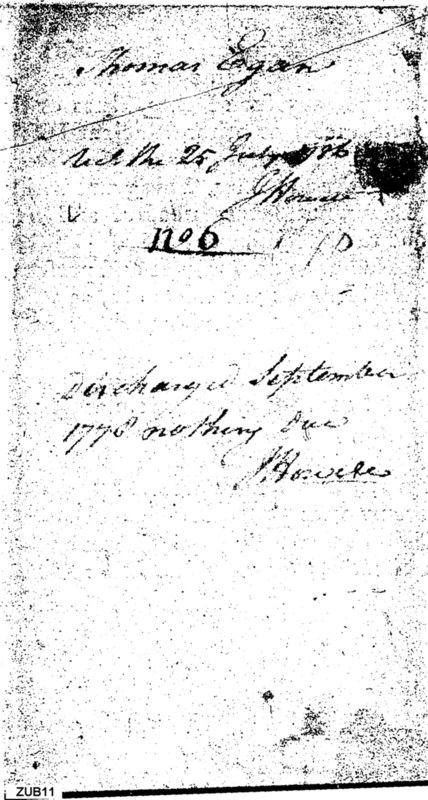 Thomas Egan
the 25 July 1786
J Howell
No 6
Discharged September
1778 nothing due
J Howell
ZUB11